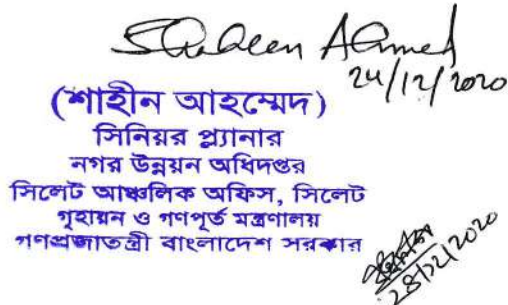 Shaheen Ahmed
24/12/2020
(শাহীন আহম্মেদ)
সিনিয়র প্ল্যানার
নগর উন্নয়ন অধিদপ্তর
সিলেট আঞ্চলিক অফিস, সিলেট
গৃহায়ন ও গণপূর্ত মন্ত্রণালয়
গণপ্রজাতন্ত্রী বাংলাদেশ সরকার
28/12/2020